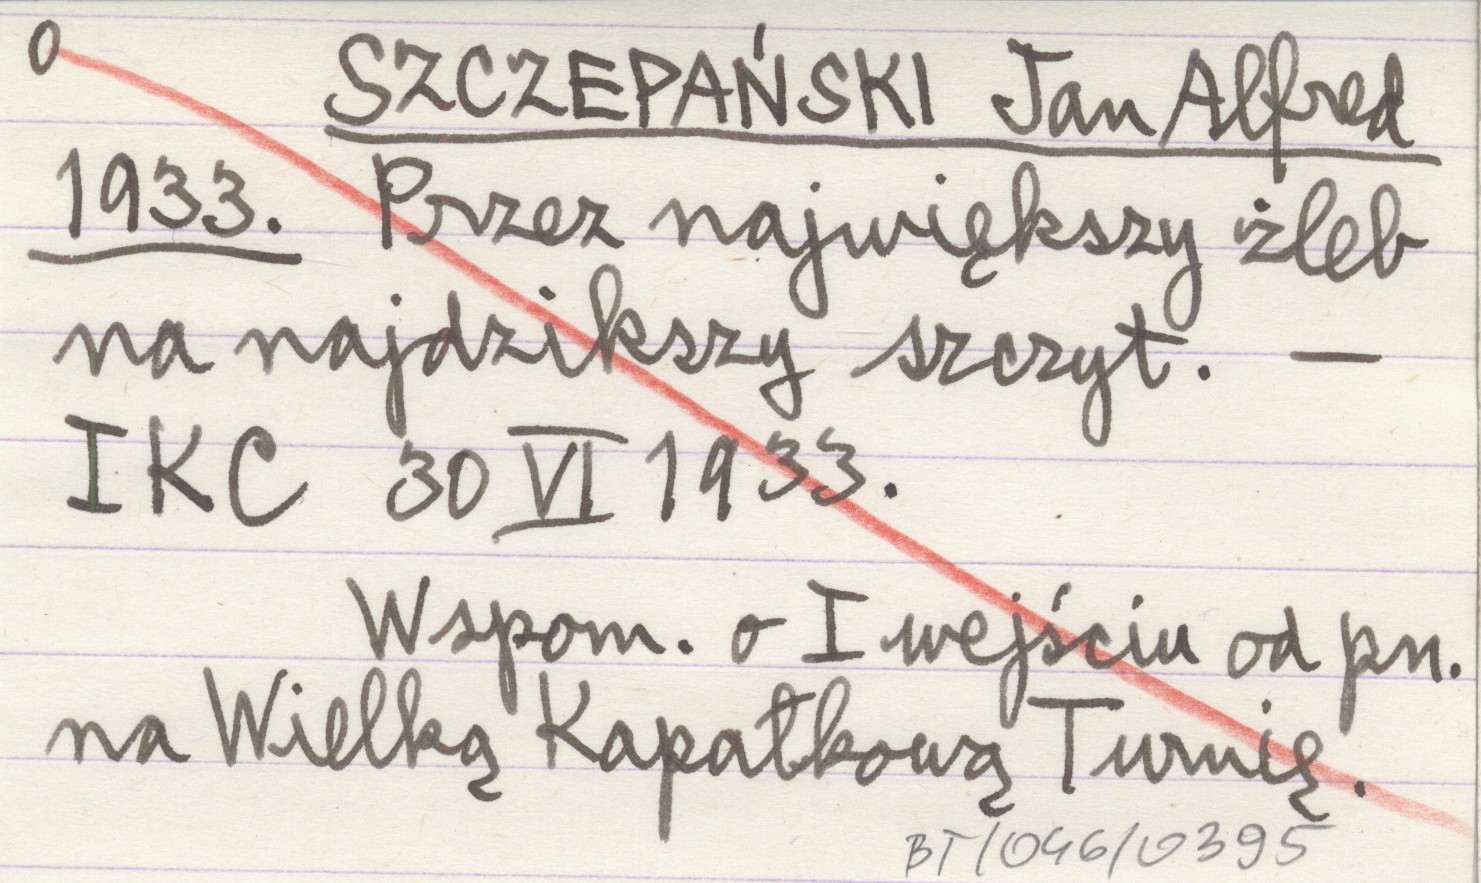 0 SZCZEPAŃSKI Jan Alfred
1933. Przez największy żleb
na najdzikszy szczyt. —
IKC 30 VI 1933.
Wspom. o I wejściu od pn.
na Wielką Kapałkową Turnię.
BT/046/0395